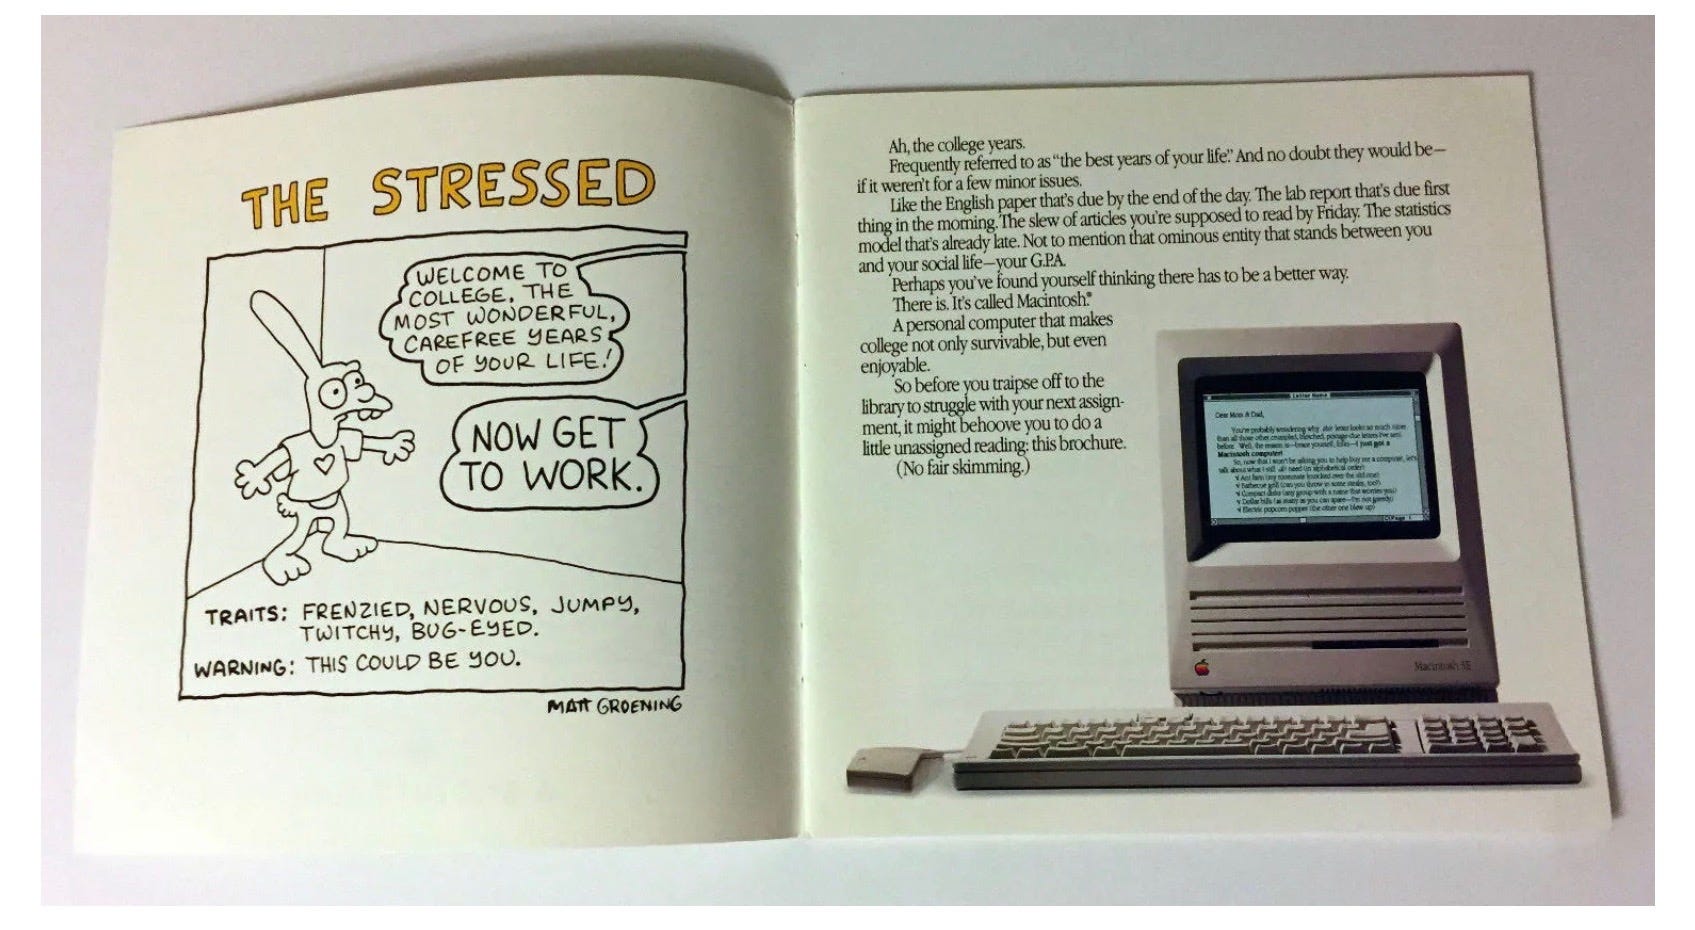 THE STRESSED
WELCOME TO
COLLEGE, THE
MOST WONDERFUL,
CAREFREE YEARS
OF YOUR LIFE!
NOW GET
TO WORK.
TRAITS: FRENZIED, NERVOUS, JUMPY,
TWITCHY, BUG-EYED.
WARNING: THIS COULD BE YOU.
MATT GROENING
Ah, the college years.
Frequently referred to as “the best years of your life.” And no doubt they would be—
if it weren't for a few minor issues.
Like the English paper that's due by the end of the day. The lab report that's due first
thing in the morning. The slew of articles you're supposed to read by Friday. The statistics
model that's already late. Not to mention that ominous entity that stands between you
and your social life—your G.P.A.
Perhaps you've found yourself thinking there has to be a better way.
There is. It's called Macintosh.®
A personal computer that makes
college not only survivable, but even
enjoyable.
So before you traipse off to the
library to struggle with your next assign-
ment, it might behoove you to do a
little unassigned reading: this brochure.
(No fair skimming.)
Letter Home
Dear Mom & Dad,
You're probably wondering why this letter looks so much nicer
than all those other crumpled, blotched, postage-due letters I've sent
before. Well, the reason is—brace yourself, folks—I just got a
Macintosh computer!
So, now that I won't be asking you to help buy me a computer, let's
talk about what I still do need (in alphabetical order)
√ Ant farm (my roommate knocked over the old one)
√ Barbecue grill (can you throw in some steaks, too?)
√ Compact disks (any group with a name that worries you)
√ Dollar bills (as many as you can spare—I'm not greedy)
√ Electric popcorn popper (the other one blew up)
Page 1
Macintosh SE